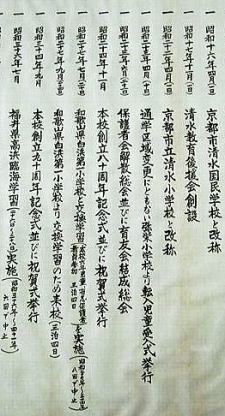 一 昭和十六年四月一日 京都市清水国民学校と改称
一 昭和十七年十月 清水教育後援会創設
一 昭和二十二年四月一日 京都市立清水小学校と改称
一 昭和二十三年四月 通学区域変更にともない弥栄小学校より転入児童受入式挙行
一 昭和二十三年 保護者会解散総会並びに育友会結成総会
一 昭和二十四年十一月 本校創立八十周年記念式並びに祝賀式挙行
一 昭和三十 和歌山県白浜第一小学校と交換学習 を実施
一 昭和三十 和歌山県白浜第一小学校より交換学習のため来校(三泊四日)
一 昭和三十四年九月 本校創立九十周年記念式並びに祝賀式挙行
一 昭和三十六年七月 福井県高浜臨海学習 実施